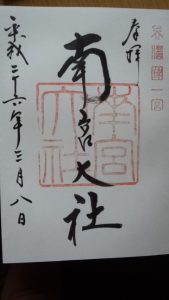 美濃國一宮
奉拝
南宮大社
南宮大社
平成二十六年三月八日